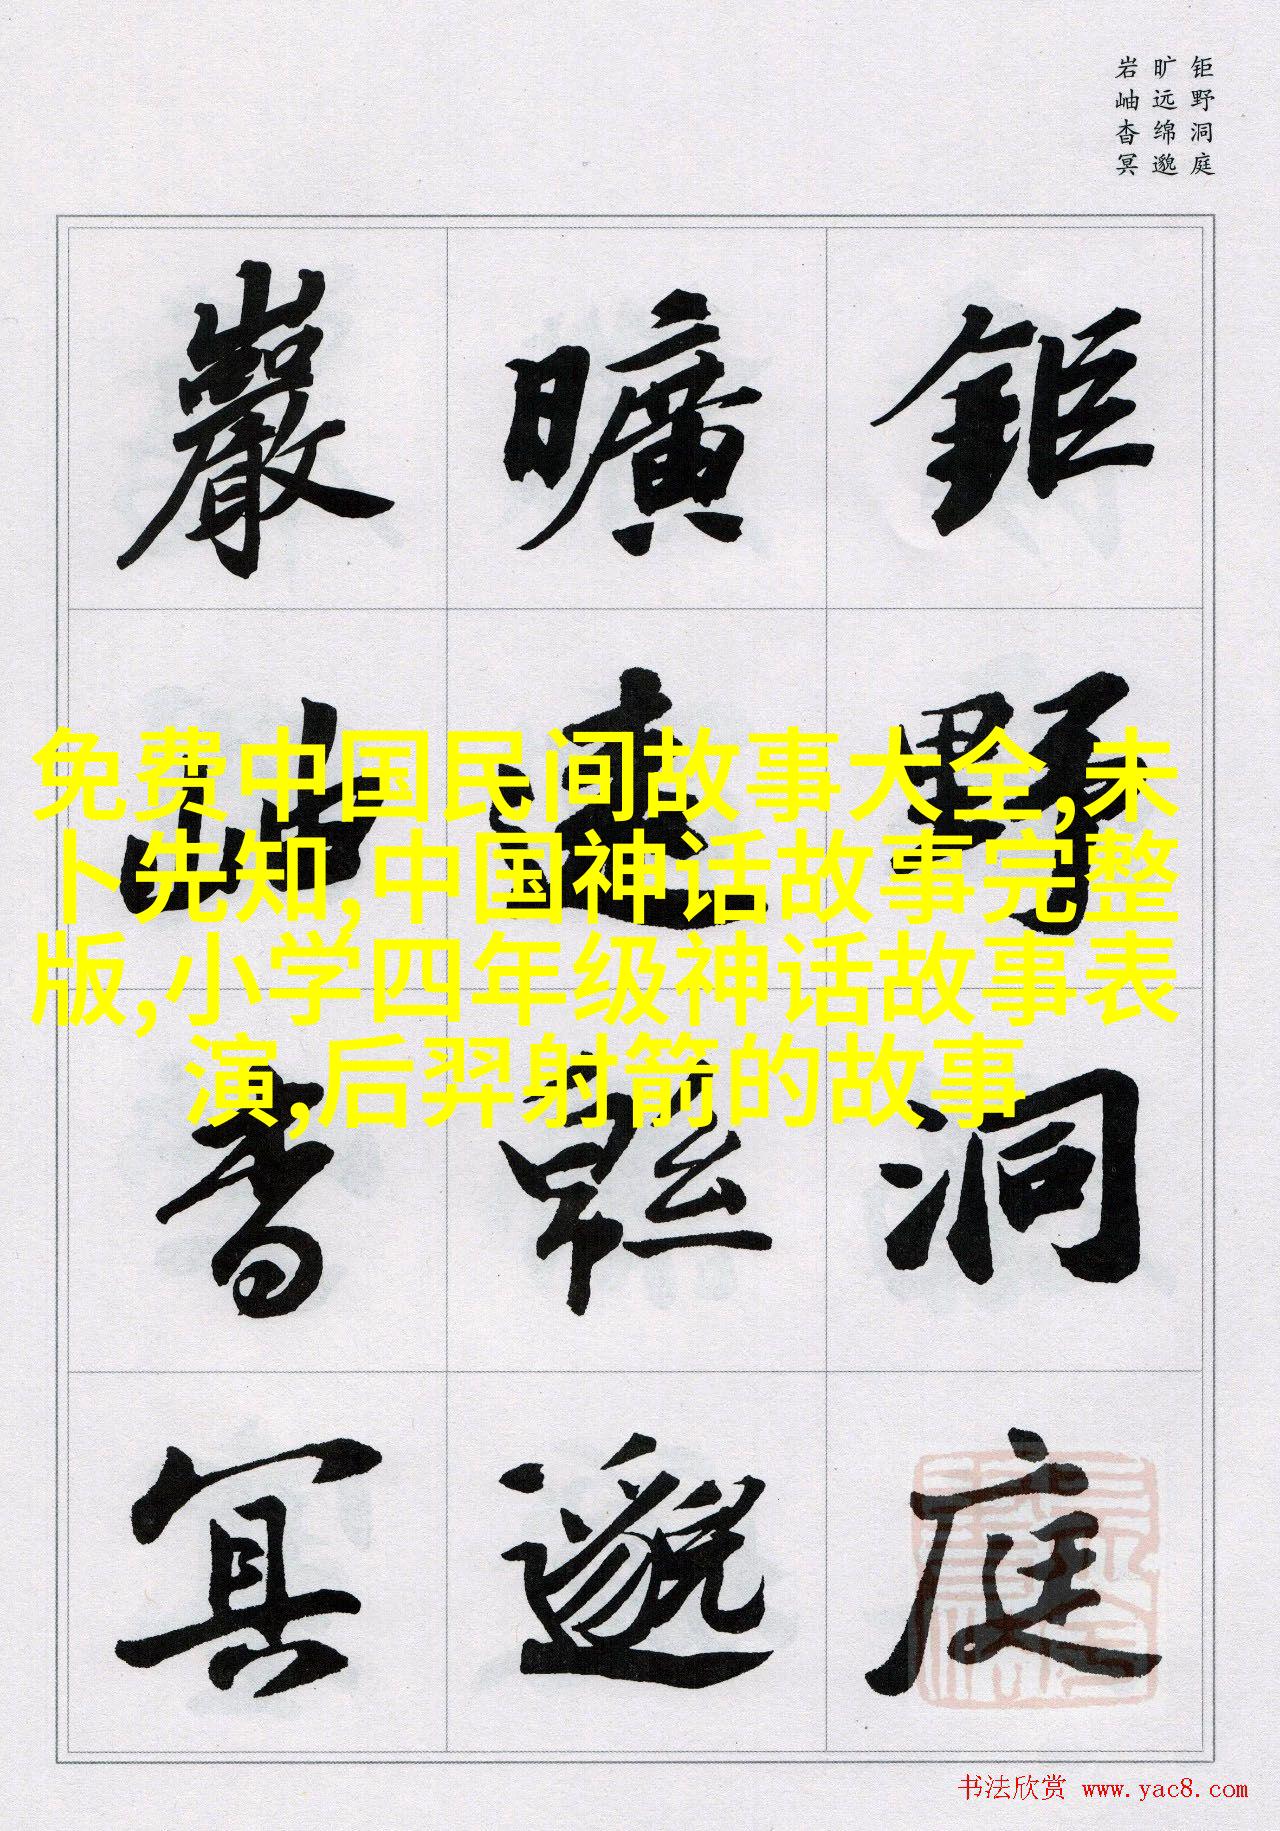 钜野洞庭
旷远绵邈
岩岫杳冥
鉅野洞庭
曠遠緜邈
巖岫杳冥
免费中国民间故事大全,未
卜先知,中国神话故事完整
版,小学四年级神话故事表
演,后羿射箭的故事
书法欣赏 www.yac8.com